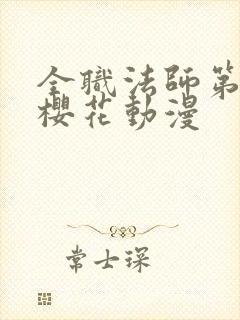 全職法師第
櫻花動漫
常士琛